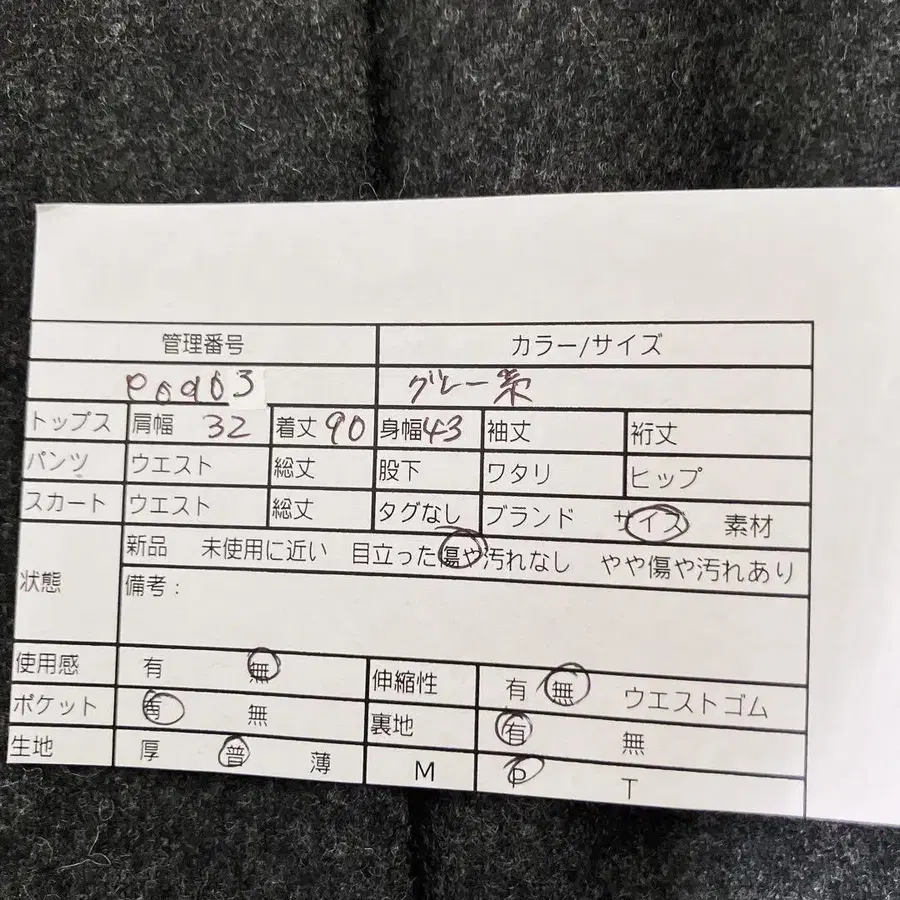 管理番号 カラー/サイズ
P0903 グレー系
トップス 肩幅 32 着丈 90 身幅 43 袖丈 裄丈
パンツ ウエスト 総丈 股下 ワタリ ヒップ
スカート ウエスト 総丈 タグなし ブランド サイズ 素材
状態 新品 未使用に近い 目立った傷や汚れなし やや傷や汚れあり
備考:
使用感 有 無 伸縮性 有 無 ウエストゴム
ポケット 有 無 裏地 有 無
生地 厚 普 薄 M P T